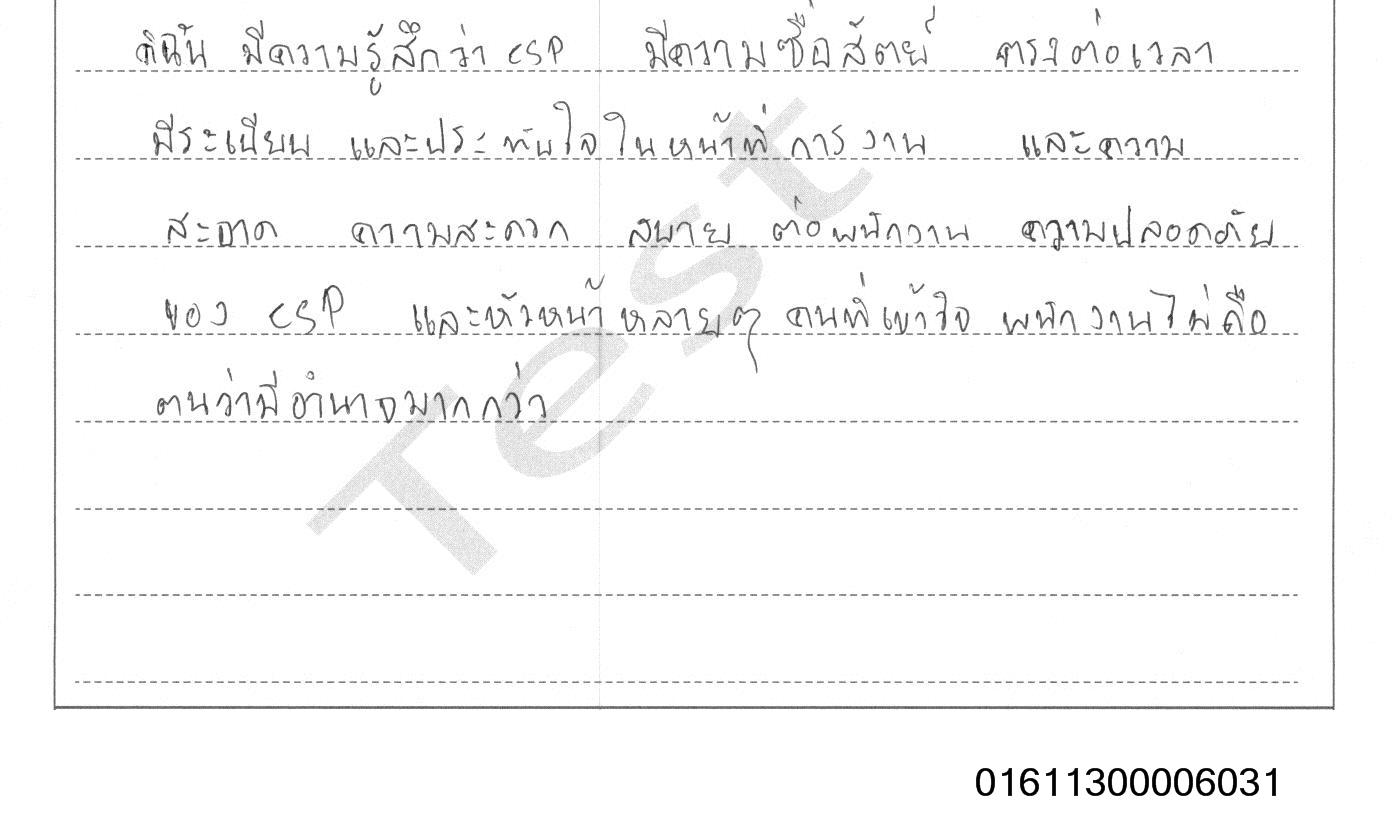 ดิฉัน มีความรู้สึกว่า CSP มีความซื่อสัตย์ ตรงต่อเวลา
มีระเบียบ และประทับใจในหน้าที่การงาน และความ
สะอาด ความสะดวก สบาย ต่อพนักงาน ความปลอดภัย
ของ CSP และหัวหน้าหลายๆ คนที่เข้าใจ พนักงานไม่ถือ
ตนว่ามีอำนาจมากกว่า
Test
01611300006031